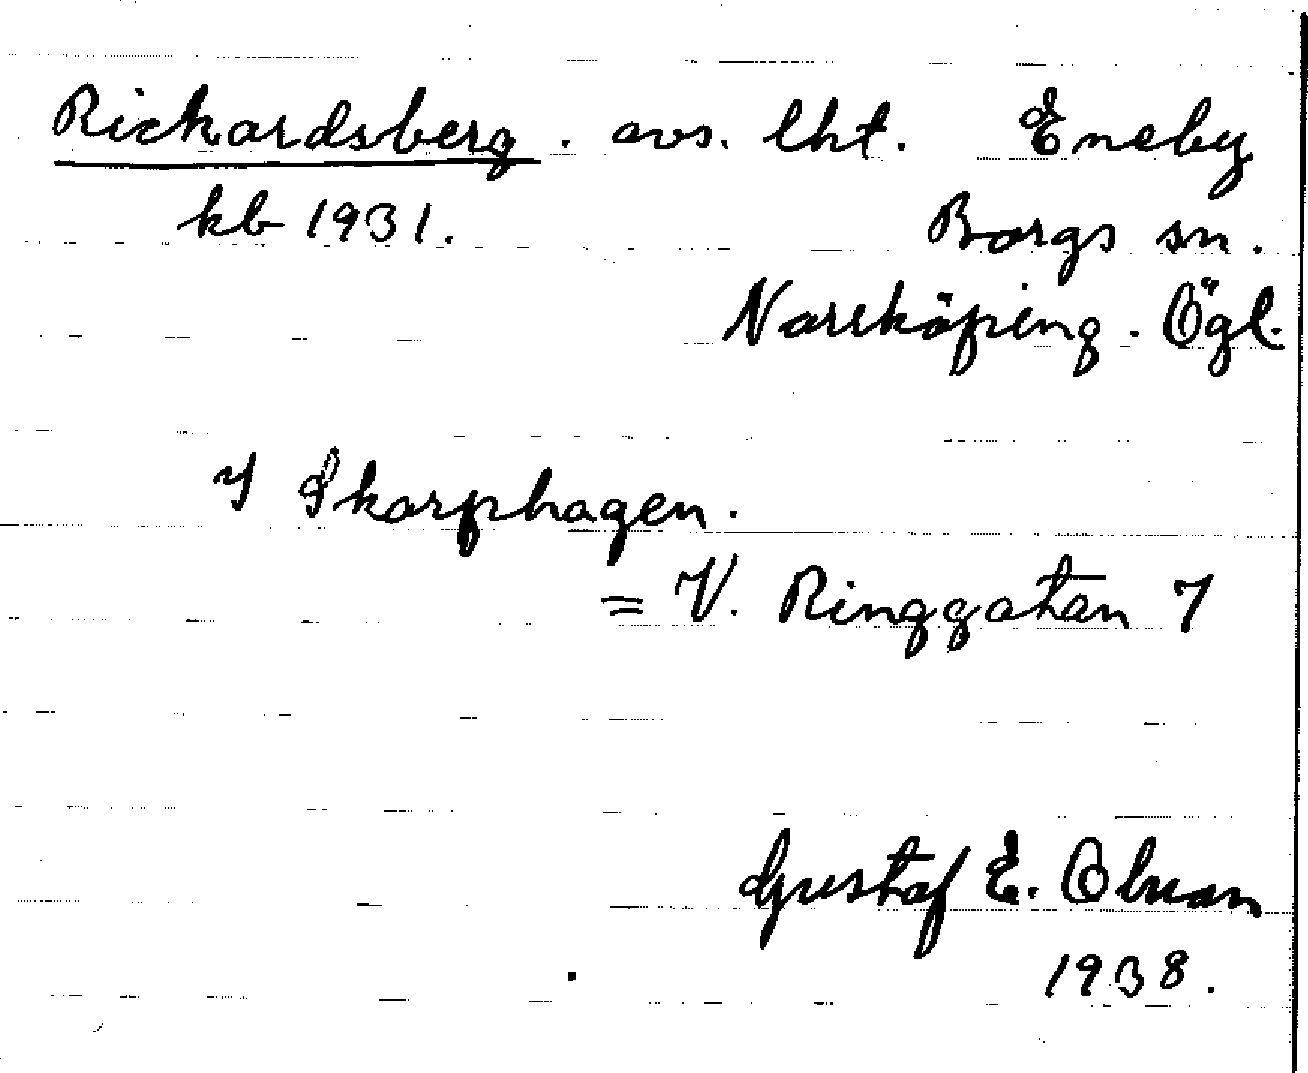 Rickardsberg. avs. lht. Eneby
kb 1931. Borgs sn.
Norrköping. Ögl.
I Skarphagen.
= V. Ringgatan 7
Gustaf E. Olman
1938.